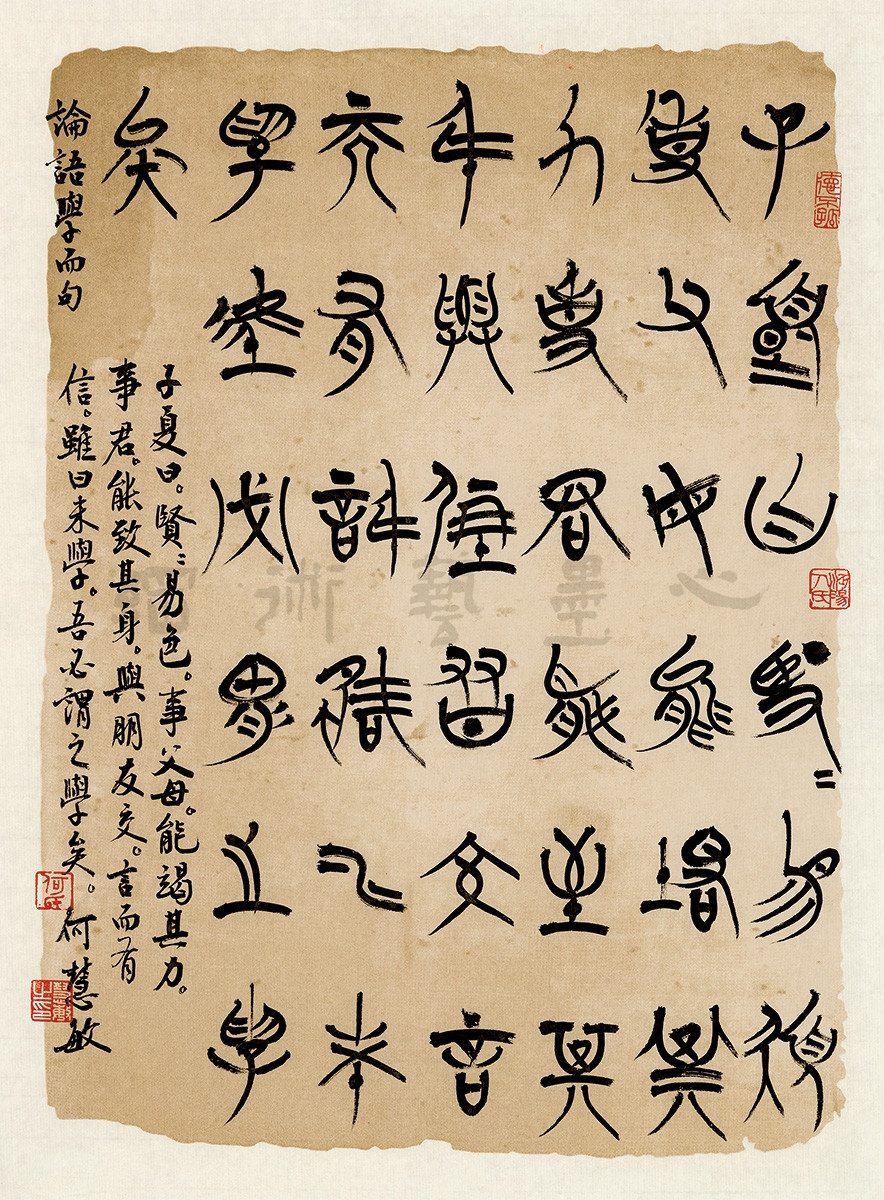 子夏曰賢=易色
事父母能竭其
力事君能致其
身與朋友交言
而有信雖曰未
學吾必謂之學
矣
論語學而句
子夏曰。賢=易色。事父母。能竭其力。
事君。能致其身。與朋友交。言而有
信。雖曰未學。吾必謂之學矣。何慧敏
德不孤
何氏
慧敏之印
心墨藝術